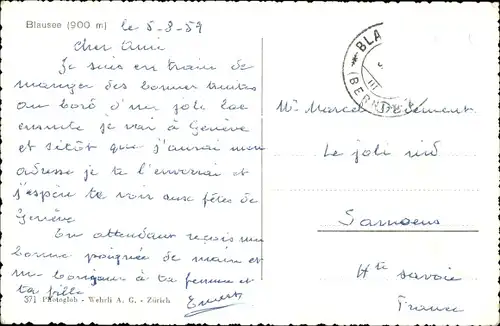 Blausee (900 m)
le 5-8-59
Cher Ami
Je suis en train de
manger des bonnes truites
au bord d'un joli lac
ensuite je vai à Genève
et sitôt que j'aurai mon
adresse je te l'enverrai et
j'espère te voir aux fêtes de
Genève
En attendant reçois une
bonne poignée de main et
un bonjour à ta femme et
ta fille
371 Photoglob - Wehrli A. G. - Zürich
BLA
(BERN
Mr Marcel
Le joli nid
Samoens
Hte Savoie
France